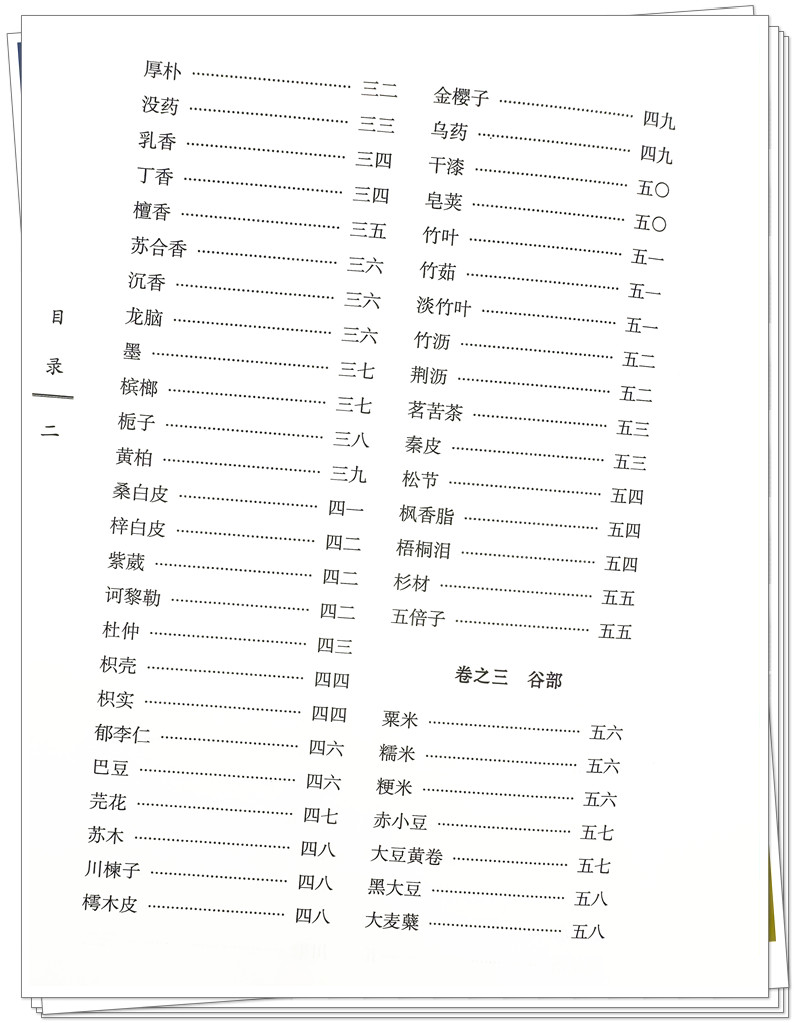 厚朴 三二
没药 三三
乳香 三四
丁香 三四
檀香 三五
苏合香 三六
沉香 三六
龙脑 三六
墨 三七
槟榔 三七
栀子 三八
黄柏 三九
桑白皮 四一
梓白皮 四二
紫葳 四二
诃黎勒 四二
杜仲 四三
枳壳 四四
枳实 四四
郁李仁 四六
巴豆 四六
芫花 四七
苏木 四八
川楝子 四八
樗木皮 四八
金樱子 四九
乌药 四九
干漆 五〇
皂荚 五〇
竹叶 五一
竹茹 五一
淡竹叶 五一
竹沥 五二
荆沥 五二
茗苦茶 五三
秦皮 五三
松节 五四
枫香脂 五四
梧桐泪 五四
杉材 五五
五倍子 五五
卷之三 谷部
粟米 五六
糯米 五六
粳米 五六
赤小豆 五七
大豆黄卷 五七
黑大豆 五八
大麦蘖 五八
目录
二